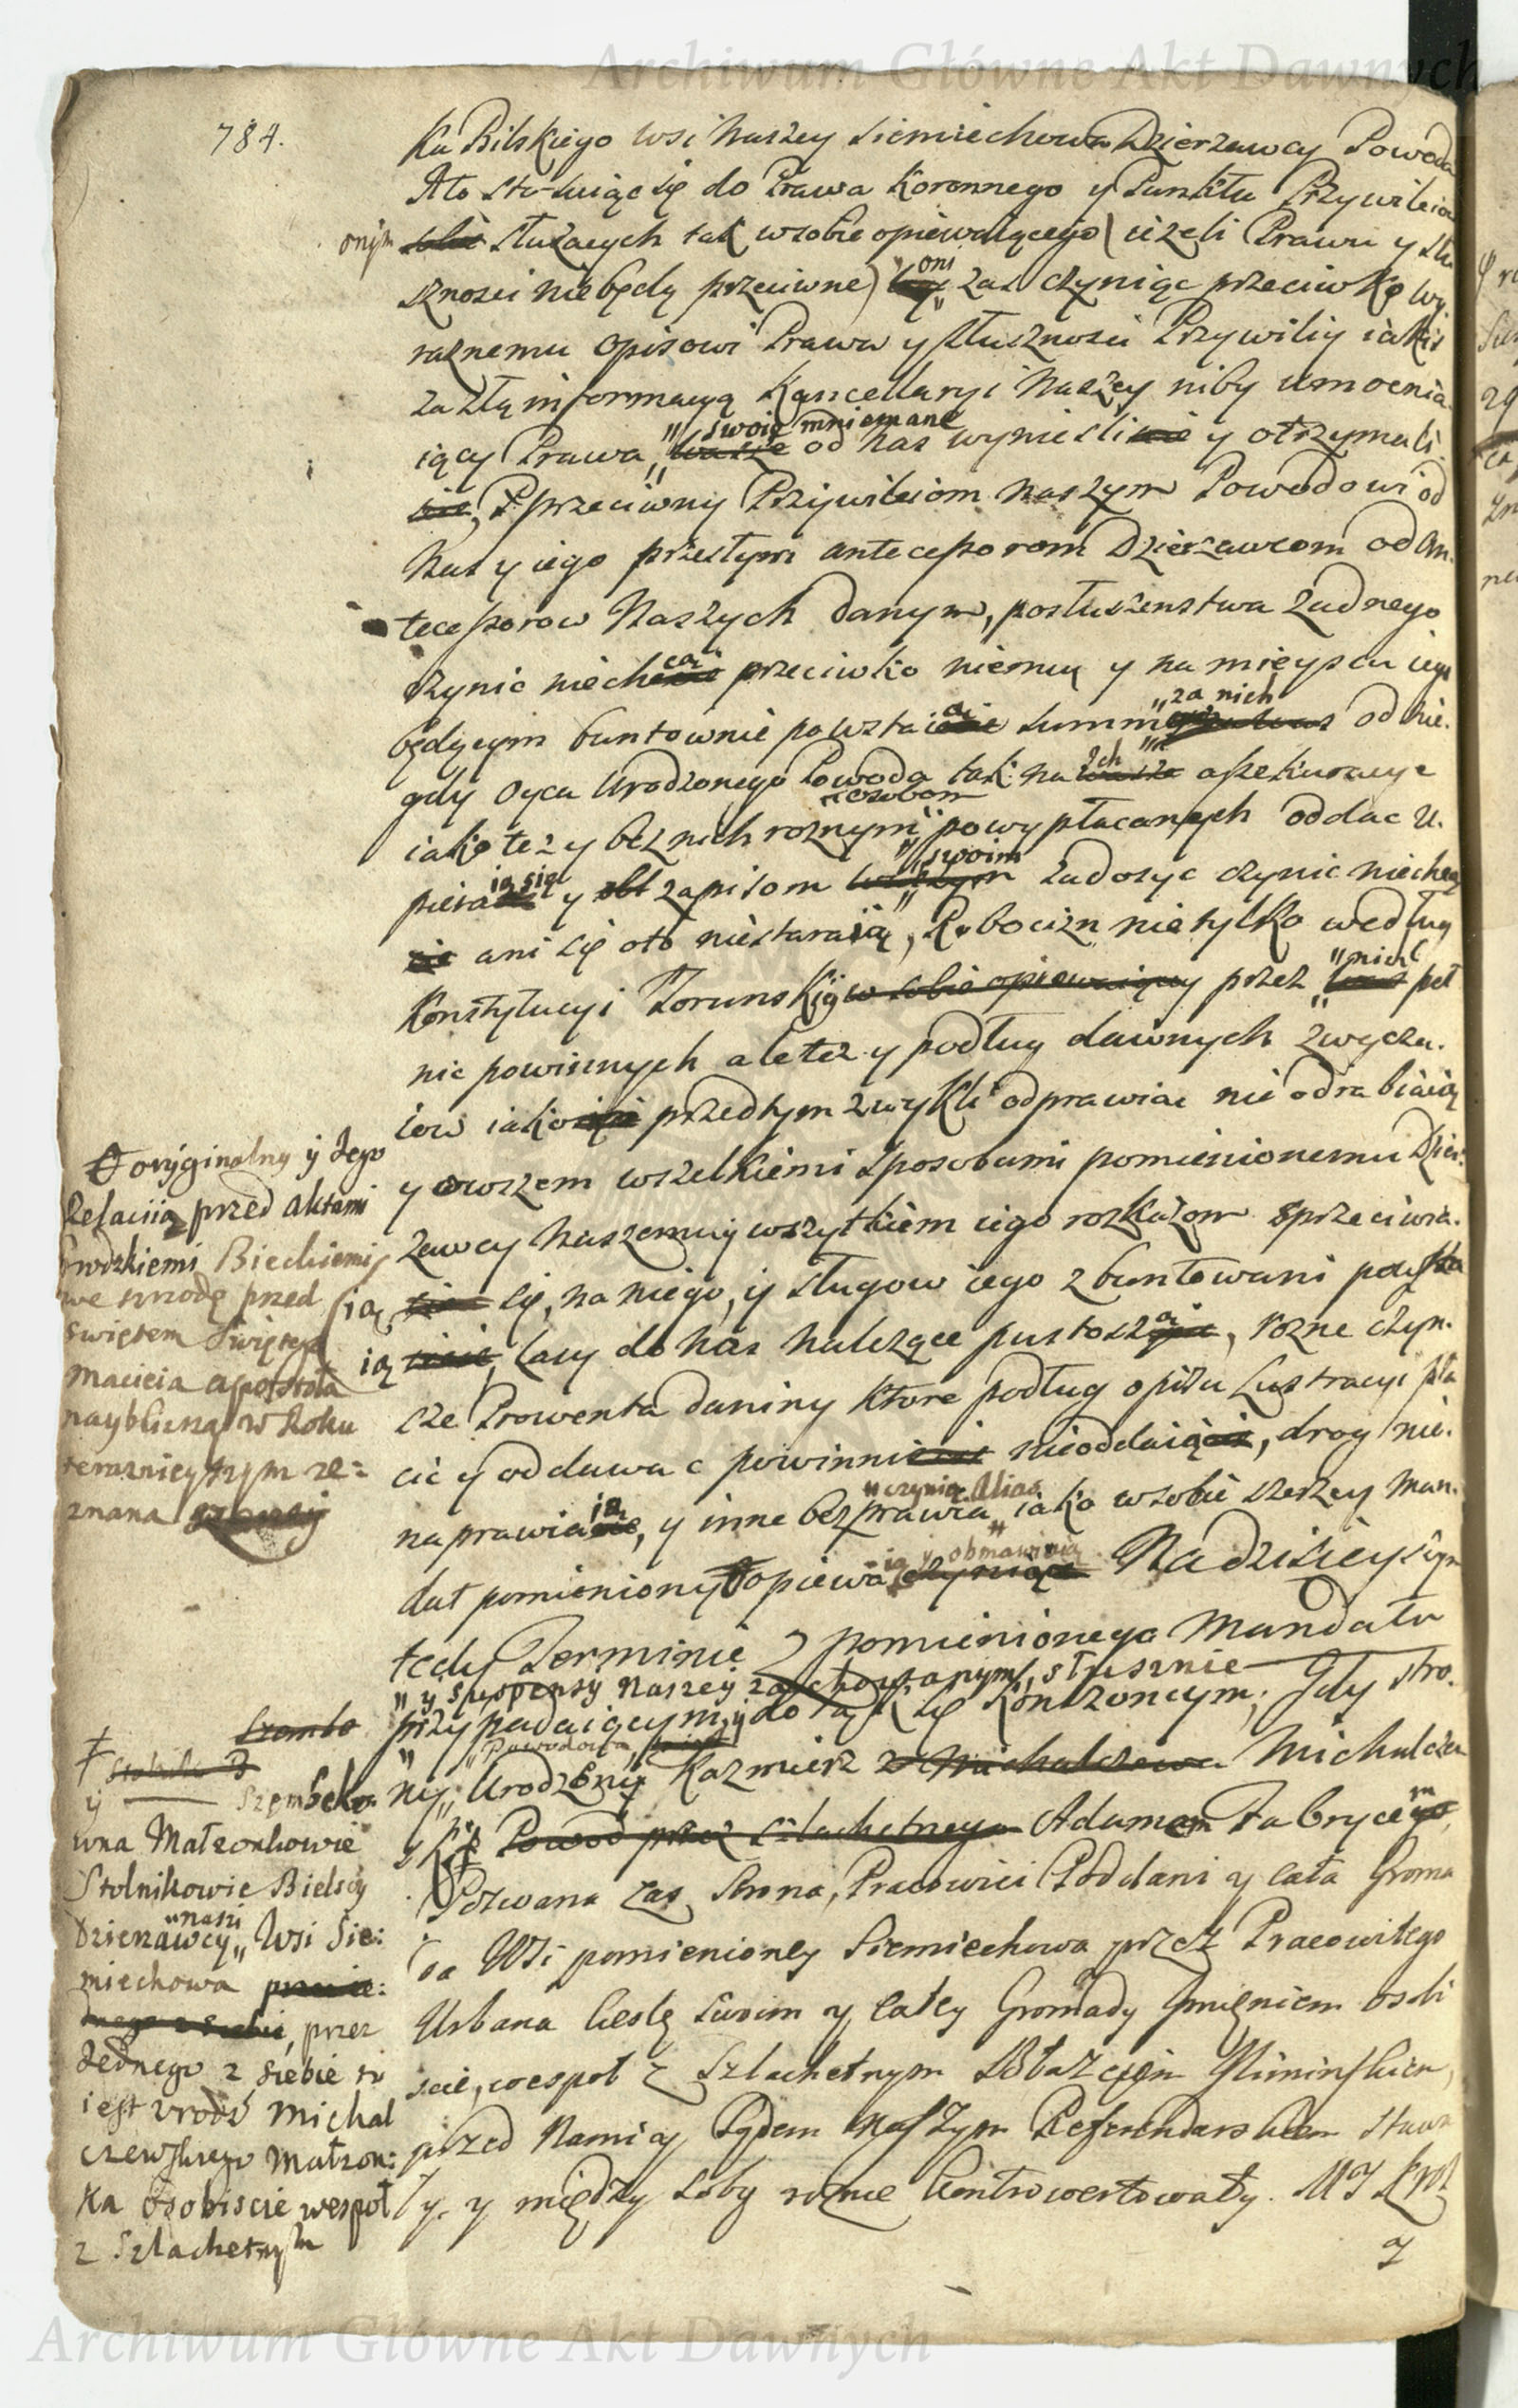 Archiwum Główne Akt Dawnych
784.
ka Bilskiego wsi Naszey Siemiechowa Dzierzawcy Powoda
A to stosuiąc się do Prawa Koronnego y Punktu Przywileiow
onym sobie służących tak w sobie opiewaiącego (ieżeli Prawu y słu
szności nie będą przeciwne) oni zaś czyniąc przeciwko wy
raznemu opisowi Prawa y słuszności Przywiley iakis
za złą informacyą Kancellaryi Naszey niby umocnia
iący Prawa „wasze swoie mniemane od Nas wynieśli y otrzymali
scie, przeciwny Przywileiom Naszym Powodowi od
Nas y iego przeszłym antecessorom Dzierzawcom od An
tecessorow Naszych danym, posłuszenstwa żadnego
czynic niechcą przeciwko niemu y na mieyscu iego
będącym buntownie powstaią Summ „za nich od nie
gdy Oyca Urodzonego Powoda tak na ich assekuracye
iako też y bez nich roznym osobom powypłacanych oddac u
pieraią się y zapisom „swoim zadosyc czynic niechcą
cie ani się oto niestaraią, Robocizn nie tylko według
Konstytucyi Torunskiy w sobie opiewaiący przez „nich peł
nic powinnych ale też y podług dawnych zwycza
iow iako przedtym zwykli odprawiac nie odrabiaią
y owszem wszelkiemi sposobami pomienionemu Dzier
zawcy Naszemu y wszytkiem iego rozkazom sprzeciwia
ią się, na niego, y sługow iego zbuntowani powsta
ią lasy do Nas należące pustoszą, rozne czyn
sze Prowenta daniny ktore podług opisu Lustracyi pła
cic y oddawac powinni nieoddaią, drog nie
naprawiaią, y inne bezprawia „czynią Alias iako w sobie szerzey Man
dat pomieniony opiewa ią y obmawiaią Na dzisieyszym
tedy Terminie z pomienionego Mandatu
„y suspensy Naszey zachowanym, słusznie
przypadaiącym, y do tąd się kończoncym, Gdy stro
ny, „Powodowa Urodzony Kazmierz z Michalczewa Michalczew
ski Powod przez szlachetnego Adamem Fabrycem
Pozwana zas Strona, Pracowici Poddani y cała Groma
da Wsi pomienioney Siemiechowa przez Pracowitego
Urbana Cieslę Swoim y całey Gromady Imieniem osobi
scie, wespoł z Szlachetnym Błażeiem Gliminskiem,
przed Nami y Sądem Naszym Referendarskim stawa
ły y między sobą roznie kontrowertowały. My Krol
z
oryginalny y Jego
Relaciią przed aktami
Grodzkiemi Bieckiemi
we srzodę przed
swiętem Swiętego
Macieia apostoła
nayblizszą w Roku
teraznieyszym ze=
znana szerzey
y Szembeko
wna Małzonkowie
Stolnikowie Bielscy
Dzierzawcy „nasi Wsi Sie:
miechowa
przez
Jednego z siebie to
iest Urodz Michal
czewskiego Małzon:
ka osobiscie wespoł
z Szlachetnym
Archiwum Główne Akt Dawnych